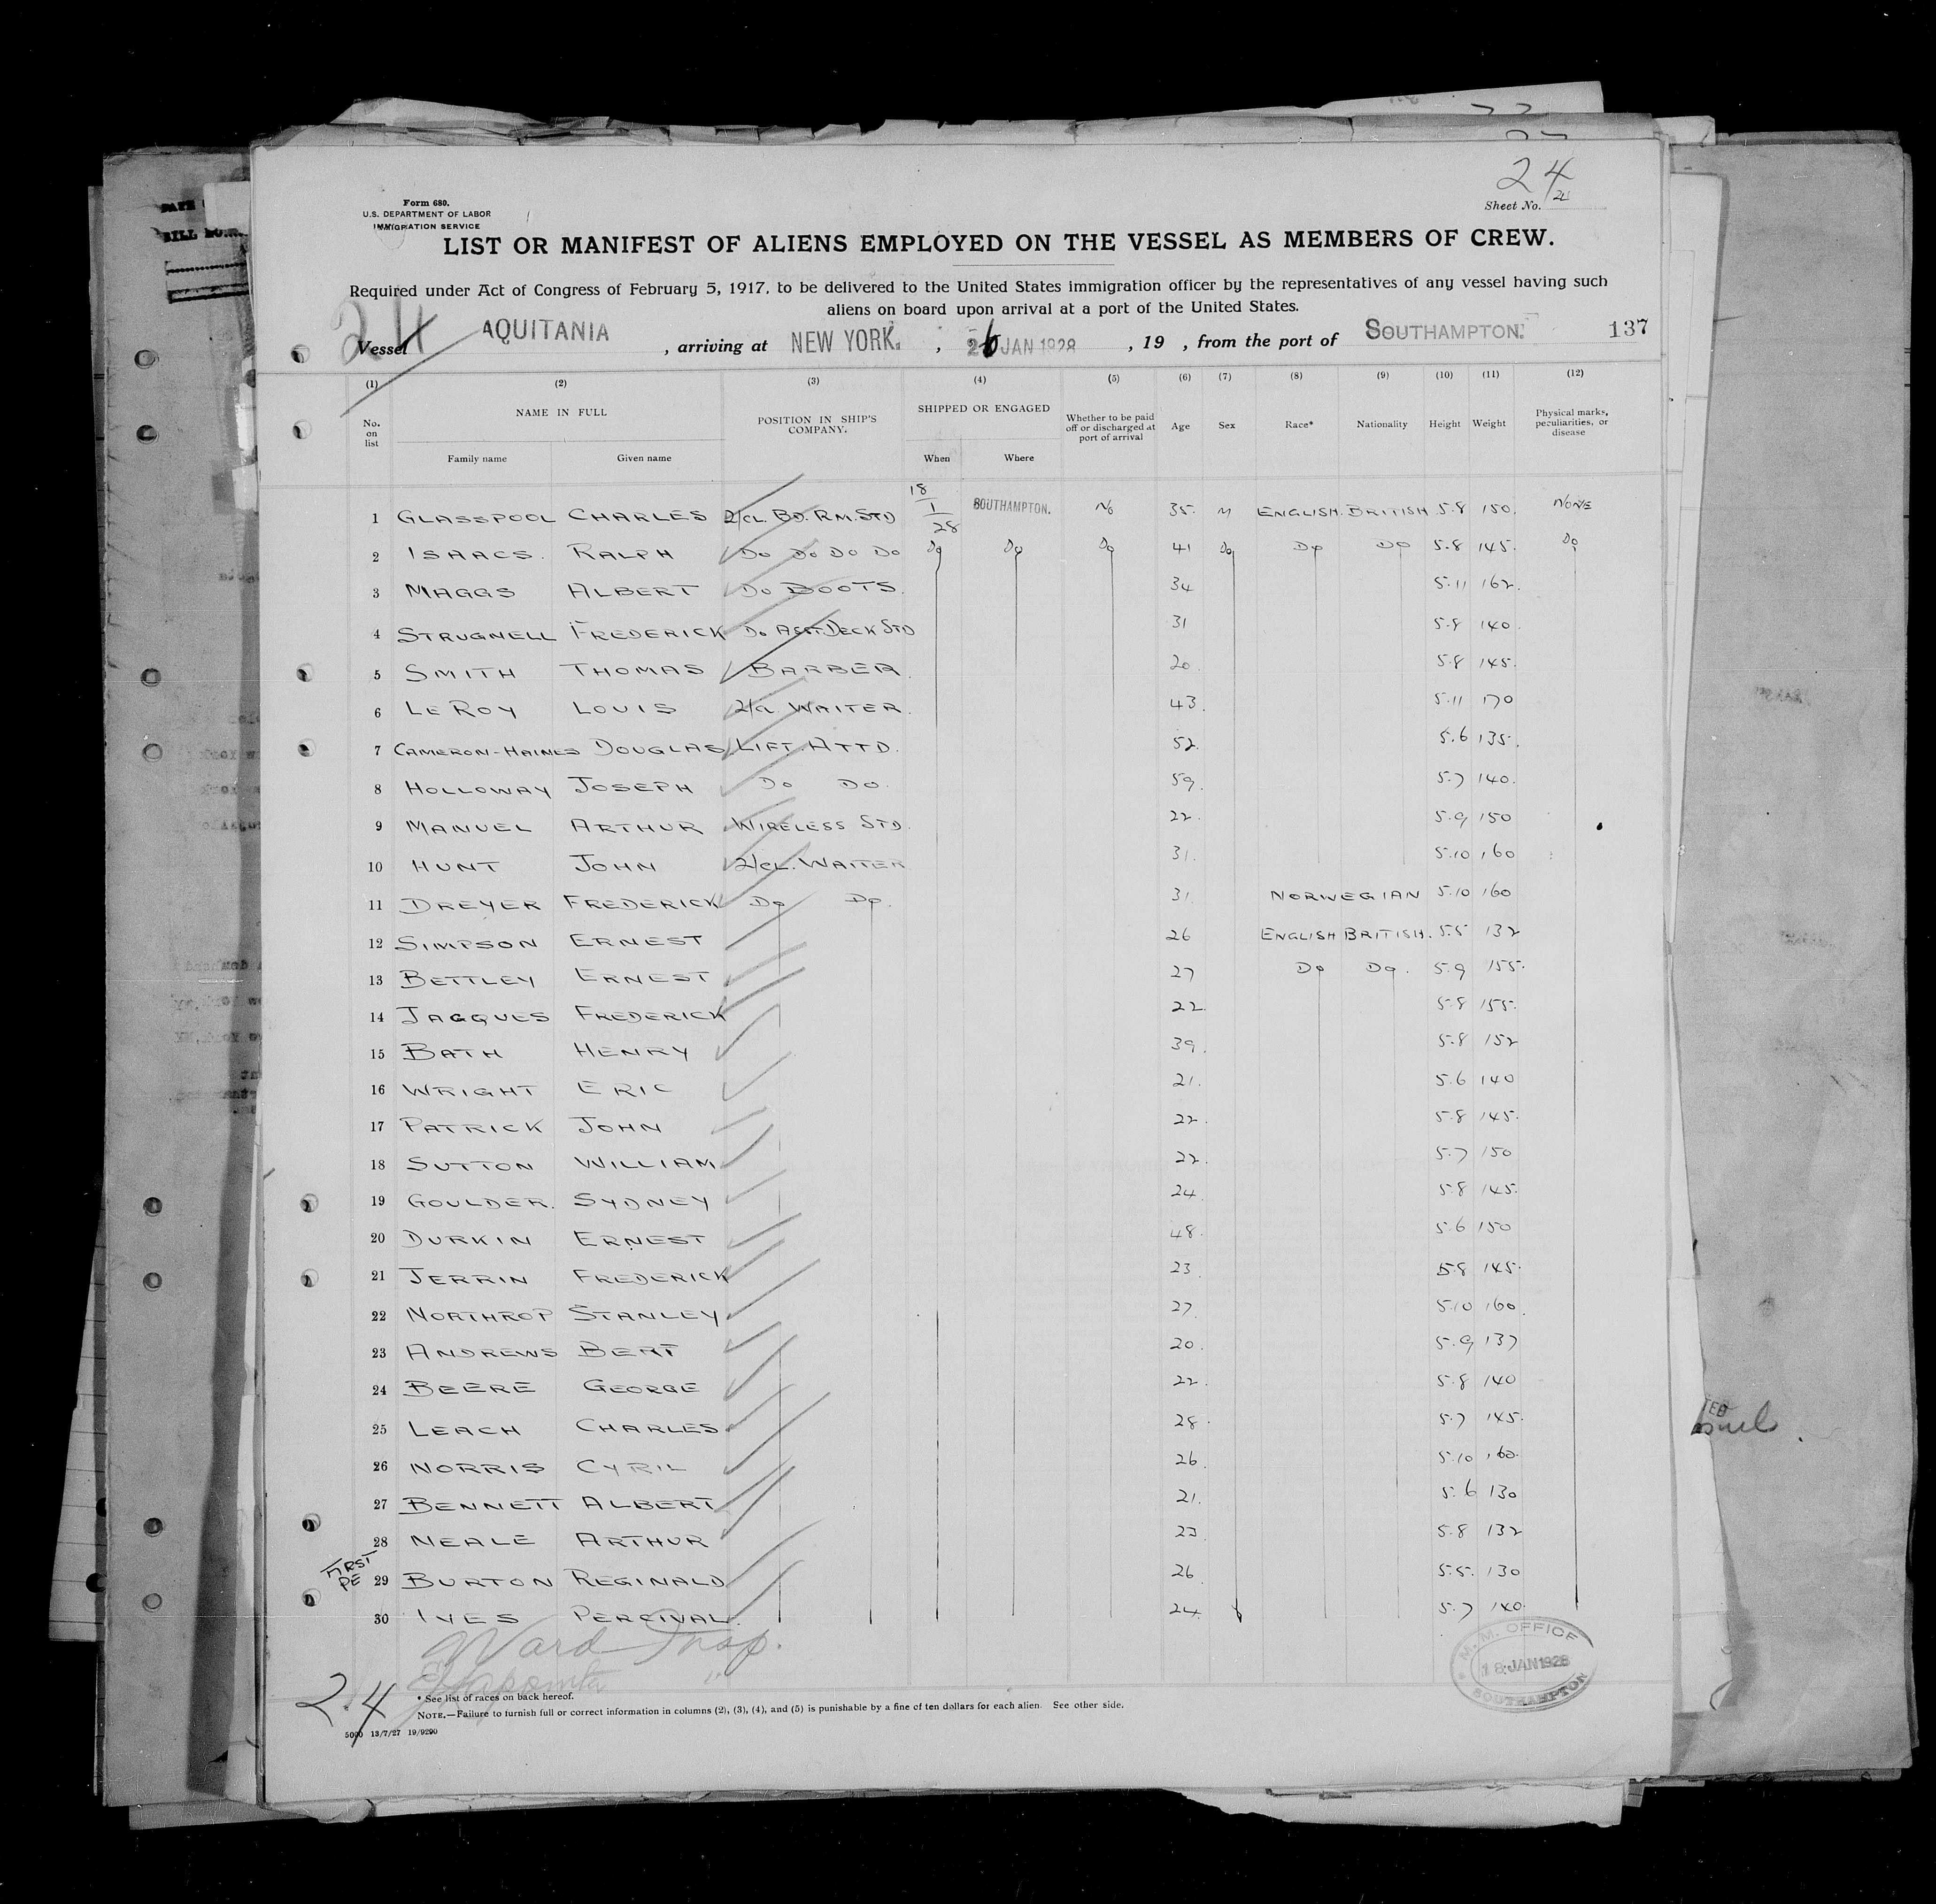 24
Form 680.
U.S. DEPARTMENT OF LABOR
IMMIGRATION SERVICE
Sheet No. 24
LIST OR MANIFEST OF ALIENS EMPLOYED ON THE VESSEL AS MEMBERS OF CREW.
Required under Act of Congress of February 5, 1917, to be delivered to the United States immigration officer by the representatives of any vessel having such
aliens on board upon arrival at a port of the United States.
24
Vessel AQUITANIA , arriving at NEW YORK. , 26 JAN 1928 , 19 , from the port of SOUTHAMPTON. 137
(1) (2) (3) (4) (5) (6) (7) (8) (9) (10) (11) (12)
No. on list NAME IN FULL POSITION IN SHIP'S COMPANY. SHIPPED OR ENGAGED Whether to be paid off or discharged at port of arrival Age Sex Race* Nationality Height Weight Physical marks, peculiarities, or disease
Family name Given name When Where
1 GLASSPOOL CHARLES 2/CL. BD. RM. STD 18/1/28 SOUTHAMPTON. No 35. M ENGLISH. BRITISH 5.8 150. NONE
2 ISAACS. RALPH Do Do Do Do Do Do Do 41 Do Do Do 5.8 145. Do
3 MAGGS ALBERT Do BOOTS. 34 5.11 162.
4 STRUGNELL FREDERICK Do ASST. DECK STD 31 5.8 140.
5 SMITH THOMAS BARBER. 20. 5.8 145.
6 LE ROY LOUIS 2/CL. WAITER. 43. 5.11 170
7 CAMERON-HAINES DOUGLAS LIFT ATTD. 52. 5.6 135.
8 HOLLOWAY JOSEPH Do Do. 59. 5.7 140.
9 MANUEL ARTHUR WIRELESS STD. 22. 5.9 150
10 HUNT JOHN 2/CL. WAITER 31. 5.10 160
11 DREYER FREDERICK Do Do. 31. NORWEGIAN 5.10 160
12 SIMPSON ERNEST 26 ENGLISH BRITISH. 5.5 132
13 BETTLEY ERNEST 27 Do Do. 5.9 155.
14 JAGQUES FREDERICK 22. 5.8 155.
15 BATH HENRY 39. 5.8 152
16 WRIGHT ERIC 21. 5.6 140
17 PATRICK JOHN 22. 5.8 145.
18 SUTTON WILLIAM 22. 5.7 150
19 GOULDER. SYDNEY 24. 5.8 145.
20 DURKIN ERNEST 48. 5.6 150
21 JERRIN FREDERICK 23. 5.8 145.
22 NORTHROP STANLEY 27. 5.10 160.
23 ANDREWS BERT 20. 5.9 137
24 BEERE GEORGE 22. 5.8 140
25 LEACH CHARLES. 28. 5.7 145.
26 NORRIS CYRIL 26. 5.10 160.
27 BENNETT ALBERT 21. 5.6 130
28 NEALE ARTHUR 23. 5.8 132
29 BURTON REGINALD 26. 5.5. 130
30 IVES PERCIVAL. 24. 5.7 140.
Ward Insp.
M. M. OFFICE
18 JAN 1928
SOUTHAMPTON
24
* See list of races on back hereof.
NOTE.—Failure to furnish full or correct information in columns (2), (3), (4), and (5) is punishable by a fine of ten dollars for each alien. See other side.
5000 13/7/27 19/9290